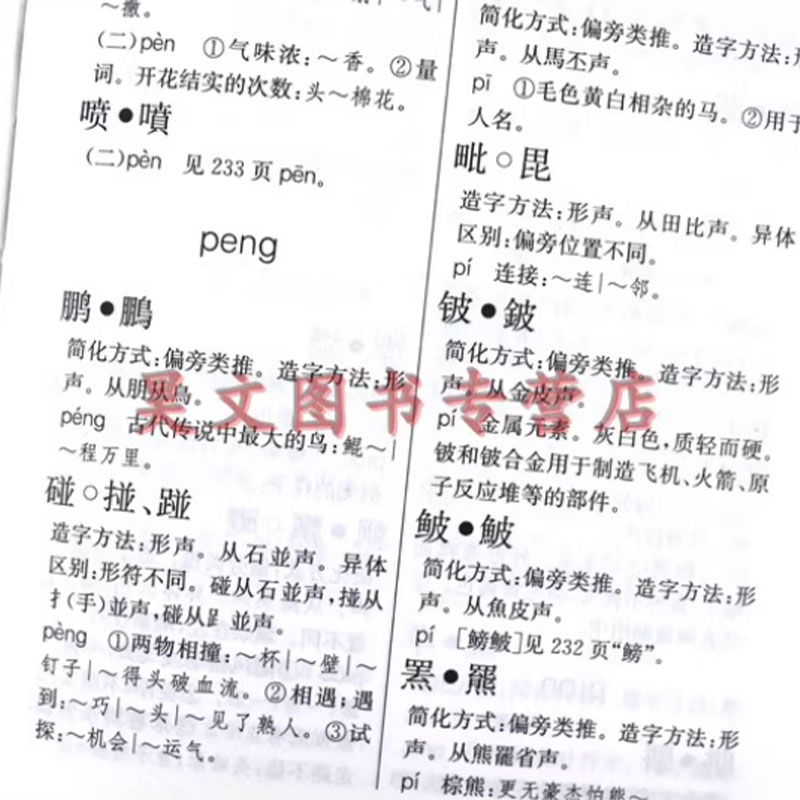 ～撒。
(二)pèn ①气味浓:～香。②量
词。开花结实的次数:头～棉花。
喷●噴
(二)pèn 见 233 页 pēn。
peng
鹏●鵬
简化方式:偏旁类推。造字方法:形
声。从朋从鳥。
péng 古代传说中最大的鸟:鲲～|
～程万里。
碰○掽、踫
造字方法:形声。从石並声。异体
区别:形符不同。碰从石並声,掽从
扌(手)並声,碰从⻊並声。
pèng ①两物相撞:～杯|～壁|～
钉子|～得头破血流。②相遇;遇
到:～巧|～头|～见了熟人。③试
探:～机会|～运气。
简化方式:偏旁类推。造字方法:形
声。从馬丕声。
pī ①毛色黄白相杂的马。②用于
人名。
毗○毘
造字方法:形声。从田比声。异体
区别:偏旁位置不同。
pí 连接:～连|～邻。
铍●鈹
简化方式:偏旁类推。造字方法:形
声。从金皮声。
pí 金属元素。灰白色,质轻而硬。
铍和铍合金用于制造飞机、火箭、原
子反应堆等的部件。
鲏●鮍
简化方式:偏旁类推。造字方法:形
声。从魚皮声。
pí [鳑鲏]见 232 页“鳑”。
罴●羆
简化方式:偏旁类推。造字方法:形
声。从熊罷省声。
pí 棕熊:更无豪杰怕熊～
果文图书专营店